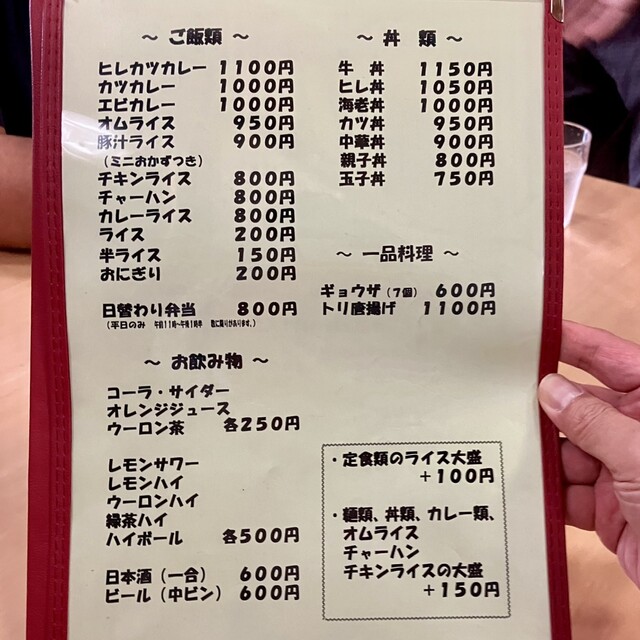 ～ ご飯類 ～
ヒレカツカレー 1100円
カツカレー 1000円
エビカレー 1000円
オムライス 950円
豚汁ライス 900円
（ミニおかずつき）
チキンライス 800円
チャーハン 800円
カレーライス 800円
ライス 200円
半ライス 150円
おにぎり 200円
日替わり弁当 800円
（平日のみ 午前11時～午後1時半 数に限りがあります。）
～ お飲み物 ～
コーラ・サイダー
オレンジジュース
ウーロン茶 各250円
レモンサワー
レモンハイ
ウーロンハイ
緑茶ハイ
ハイボール 各500円
日本酒（一合） 600円
ビール（中ビン） 600円
～ 丼 類 ～
牛 丼 1150円
ヒレ丼 1050円
海老丼 1000円
カツ丼 950円
中華丼 900円
親子丼 800円
玉子丼 750円
～ 一品料理 ～
ギョウザ（7個） 600円
トリ唐揚げ 1100円
・定食類のライス大盛
＋100円
・麺類、丼類、カレー類、
オムライス
チャーハン
チキンライスの大盛
＋150円